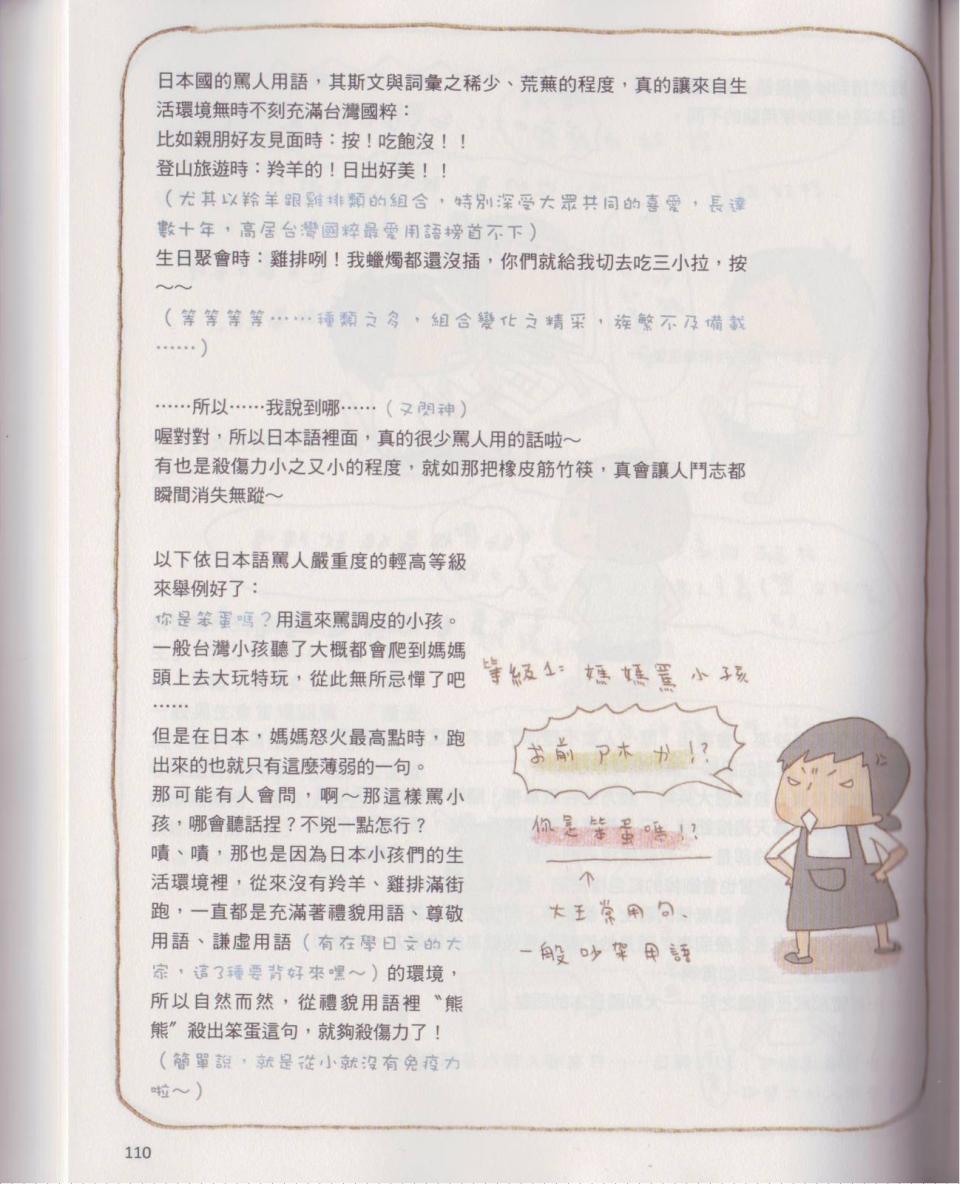 日本國的罵人用語，其斯文與詞彙之稀少、荒蕪的程度，真的讓來自生
活環境無時不刻充滿台灣國粹：
比如親朋好友見面時：按！吃飽沒！！
登山旅遊時：羚羊的！日出好美！！
（尤其以羚羊跟雞排類的組合，特別深受大眾共同的喜愛，長達
數十年，高居台灣國粹最愛用語榜首不下）
生日聚會時：雞排咧！我蠟燭都還沒插，你們就給我切去吃三小拉，按
～～
（等等等等……種類之多，組合變化之精采，族繁不及備載
……）
……所以……我說到哪……（又閃神）
喔對對，所以日本語裡面，真的很少罵人用的話啦～
有也是殺傷力小之又小的程度，就如那把橡皮筋竹筷，真會讓人鬥志都
瞬間消失無蹤～
以下依日本語罵人嚴重度的輕高等級
來舉例好了：
你是笨蛋嗎？用這來罵調皮的小孩。
一般台灣小孩聽了大概都會爬到媽媽
頭上去大玩特玩，從此無所忌憚了吧
……
但是在日本，媽媽怒火最高點時，跑
出來的也就只有這麼薄弱的一句。
那可能有人會問，啊～那這樣罵小
孩，哪會聽話捏？不兇一點怎行？
嘖、嘖，那也是因為日本小孩們的生
活環境裡，從來沒有羚羊、雞排滿街
跑，一直都是充滿著禮貌用語、尊敬
用語、謙虛用語（有在學日文的大
家，這3種要背好來嘿～）的環境，
所以自然而然，從禮貌用語裡〝熊
熊〞殺出笨蛋這句，就夠殺傷力了！
（簡單說，就是從小就沒有免疫力
啦～）
等級1：媽媽罵小孩
お前 アホ か!?
你是笨蛋嗎!?
↑
大王常用句
一般吵架用語
110